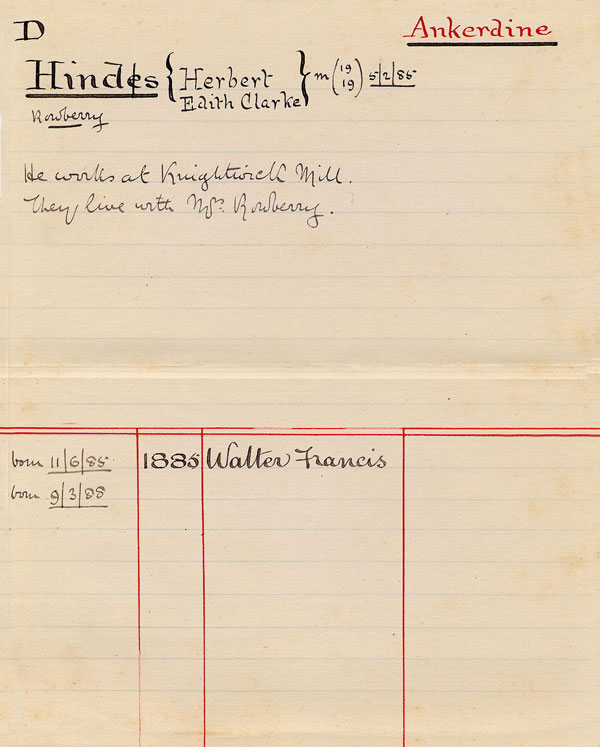 D
Ankerdine
Hindes { Herbert
Edith Clarke } m (19
19) 5/2/85
Rowberry
He works at Knightwick Mill.
They live with Mrs. Rowberry.
born 11/6/85 1885 Walter Francis
born 9/3/88